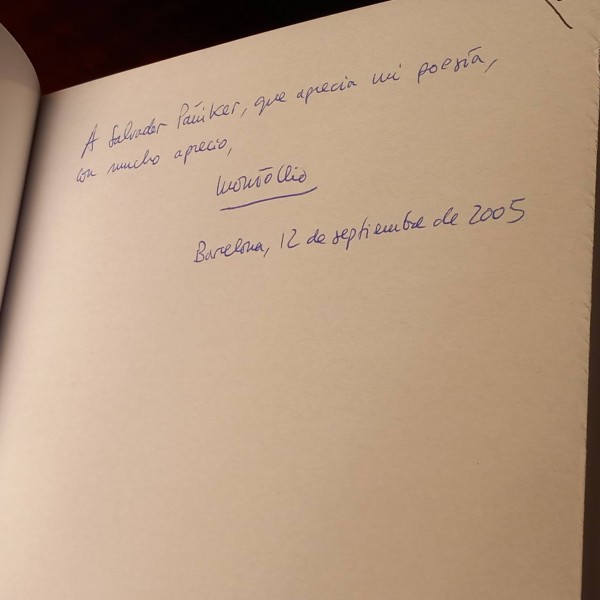 A Salvador Pániker, que aprecia mi poesía,
con mucho aprecio,
Montollio
Barcelona, 12 de septiembre de 2005